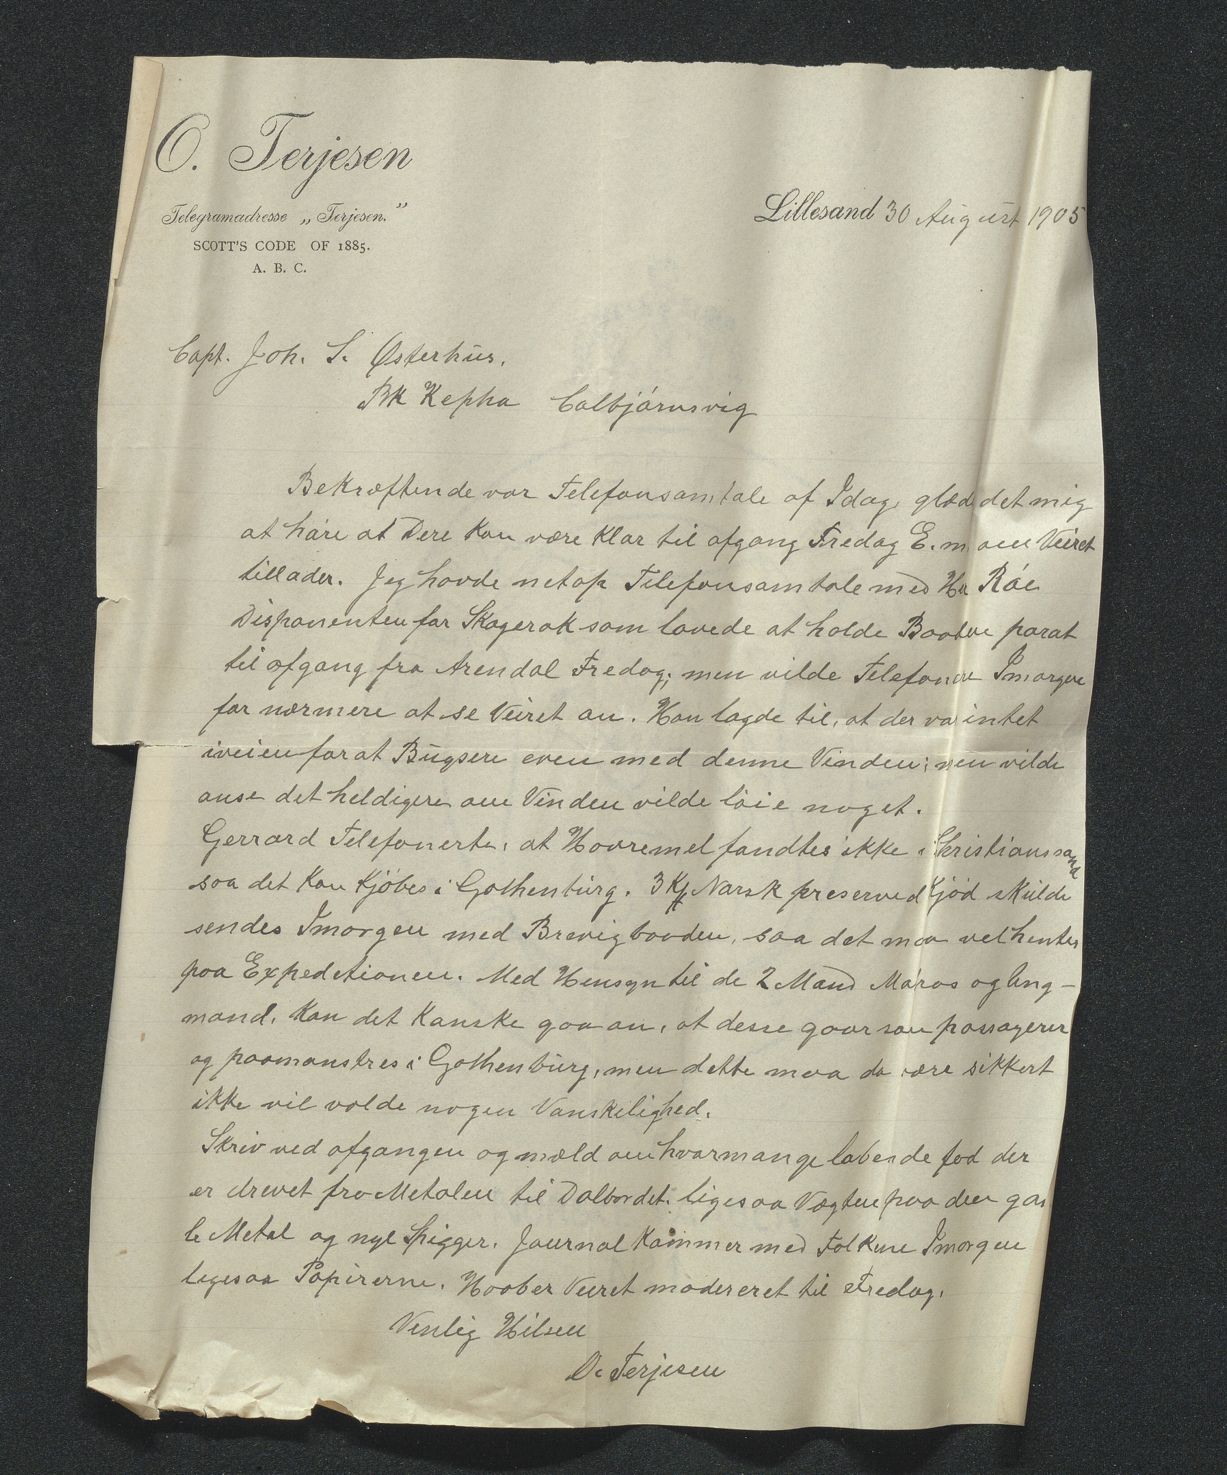 O. Terjesen
Telegramadresse „Terjesen."
SCOTT'S CODE OF 1885.
A. B. C.
Lillesand 30 August 1905
Capt. Joh. S. Østerhus.
Bk Kepha Calbjørnsvig
Bekræftende vor Telefonsamtale af Idag, glæd det mig
at høre at Dere kan være klar til afgang Fredag E.m. om Veiret
tillader. Jeg havde netop Telefonsamtale med Hr Röe
Disponenten for Skagerak som lovede at holde Baaden parat
til afgang fra Arendal Fredag; men vilde Telefonere Imorgen
for nærmere at se Veiret an. Han lagde til, at der var intet
iveien for at Bugsere even med denne Vinden; men vilde
anse det heldigere om Vinden vilde løie noget.
Gerrard Telefonerte, at Havremel fandtes ikke i Christianssand
saa det kan kjøbes i Gothenburg. 3 Norsk preserved kjød skulde
sendes Imorgen med Brevigbaaden, saa det maa vel hentes
paa Expeditionen. Med Hensyn til de 2 Mand Maros og Ung-
mand, kan det kanske gaa an, at desse gaar som passagerer
og paamønstres i Gothenburg, men dette maa da være sikkert
ikke vil volde nogen Vanskelighed.
Skriv ved afgangen og mæld om hvormange løbende fod der
er drevet fra Metalen til Dalbordet. ligesaa Vægten paa den gam
le Metal og nye Spiger. Journal kommer med Folkene Imorgen
ligesaa Papirerne. Haaber Veiret modereret til Fredag.
Venlig Hilsen
O. Terjesen